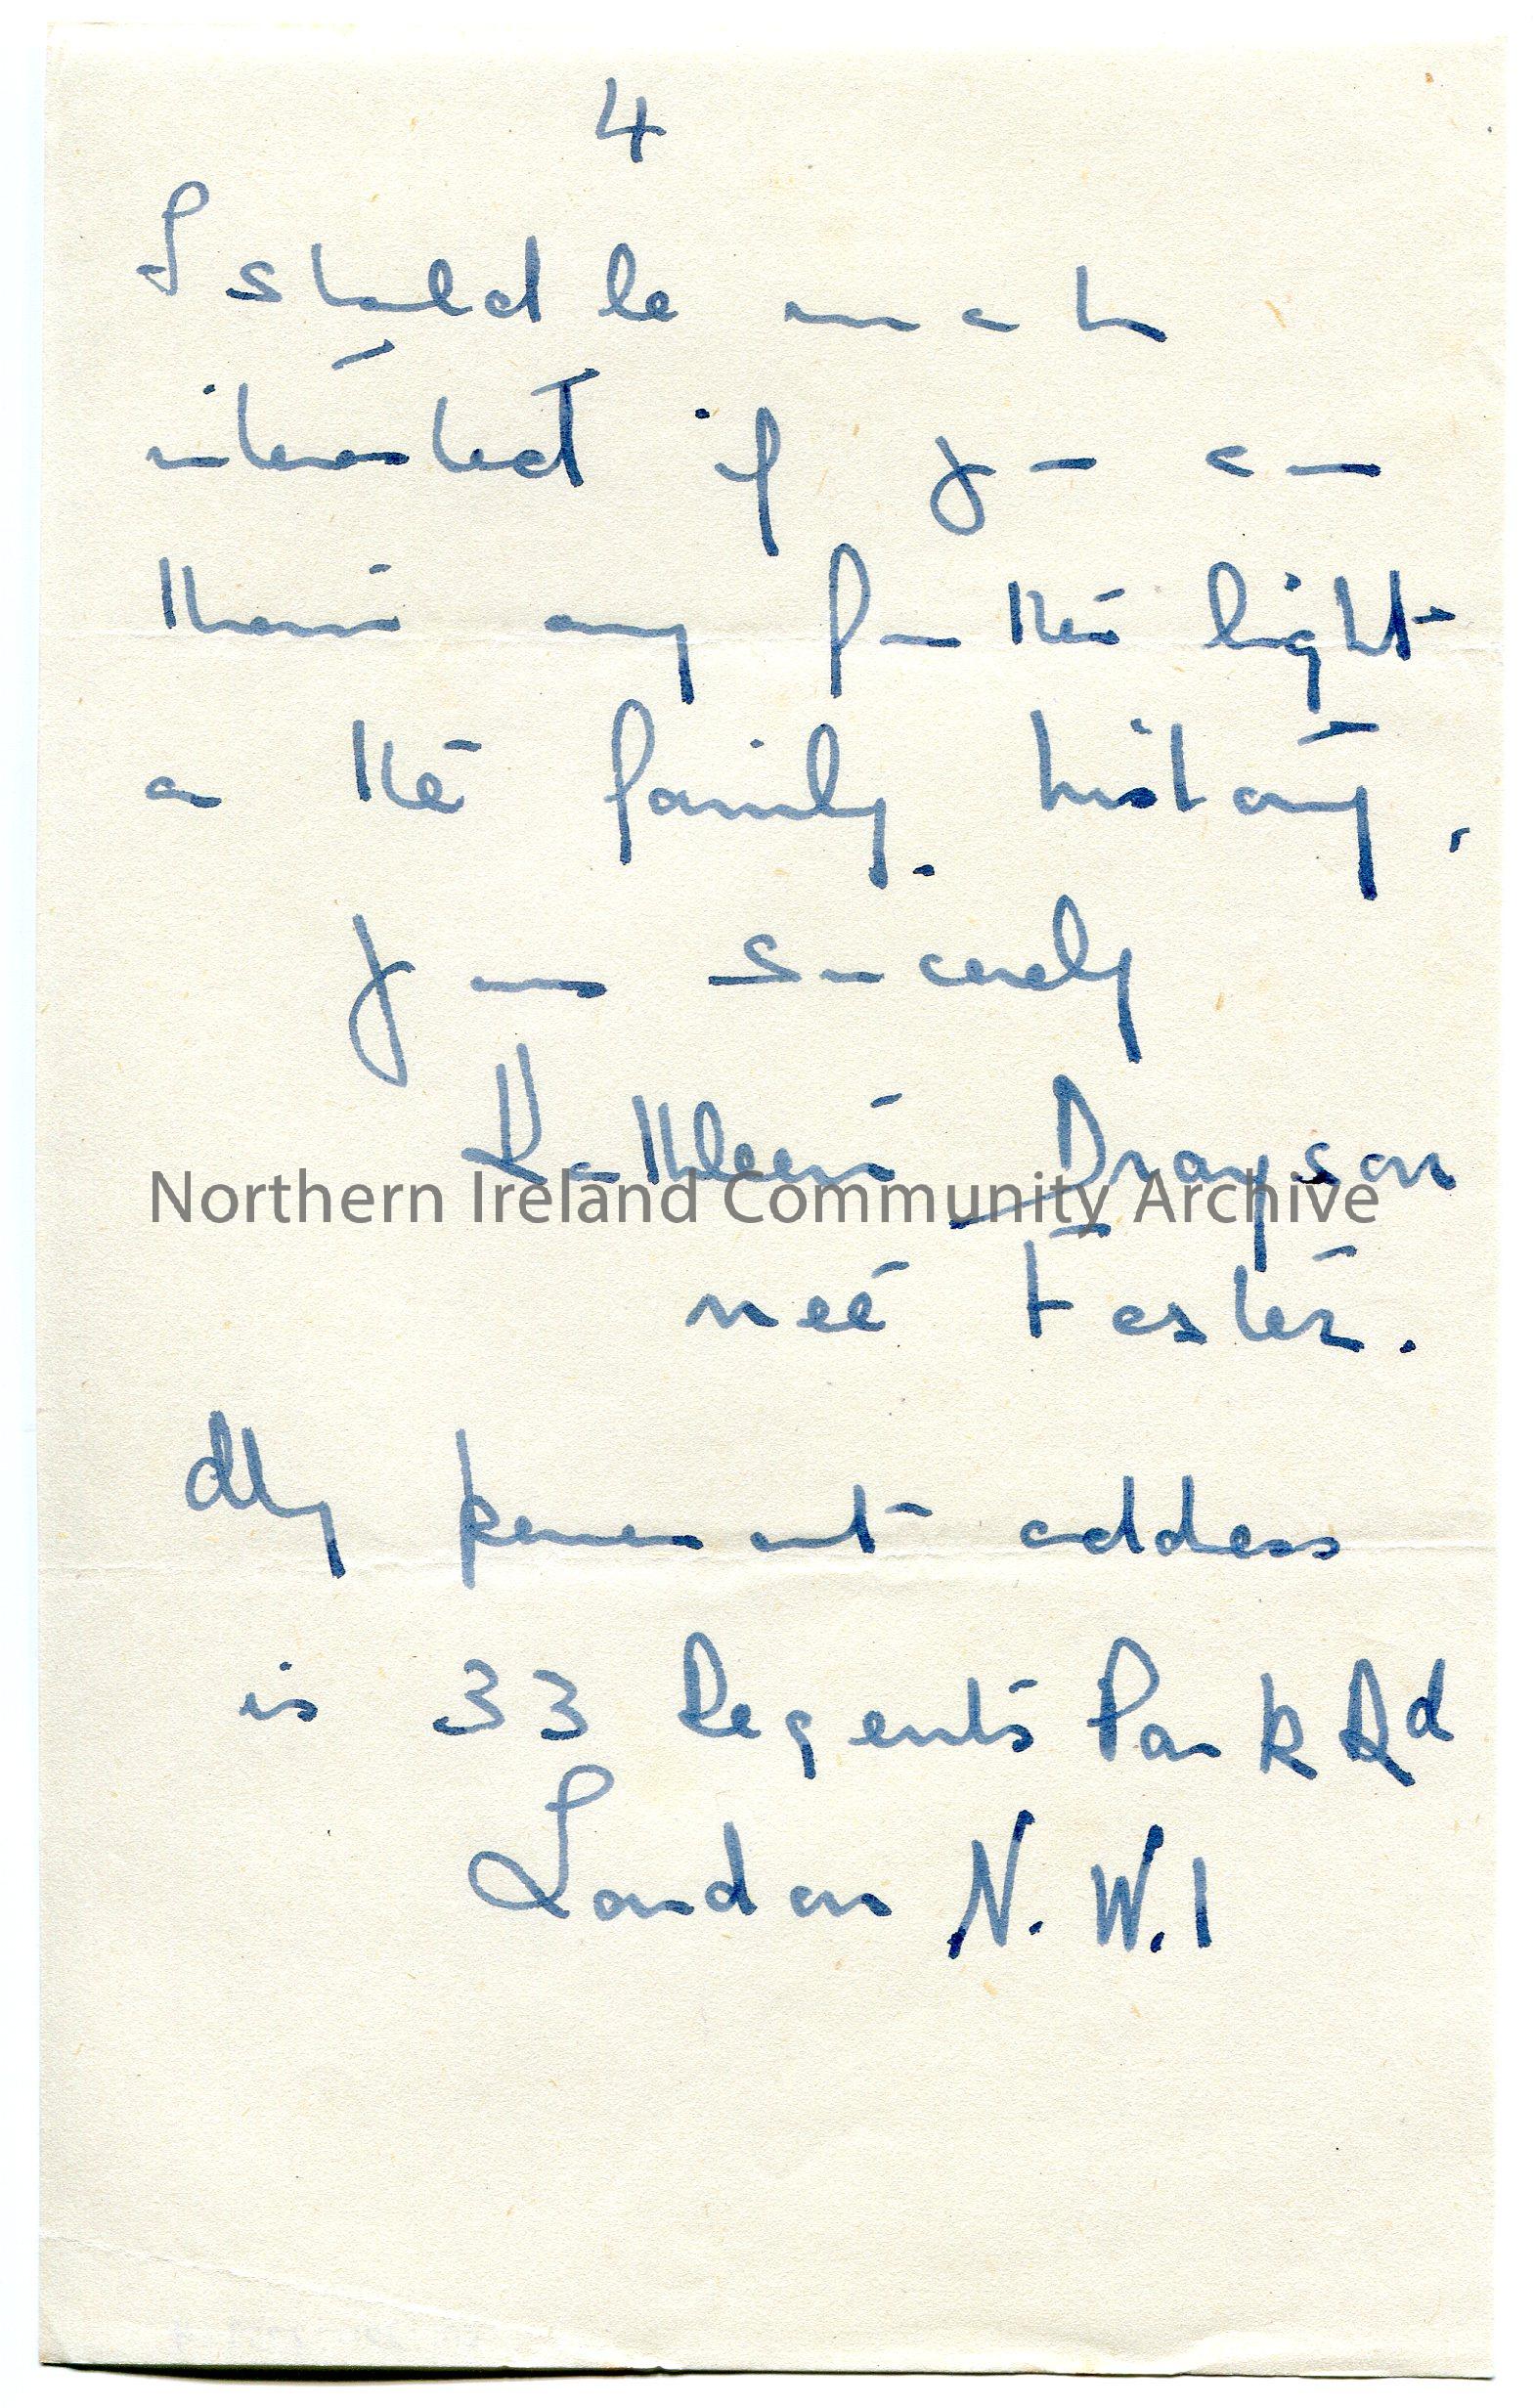 4
I should be much
interested if you can
throw any further light
on the family history.
Yours sincerely
Kathleen Drayson
Northern Ireland Community Archive
neé Foster.
My permanent address
is 33 Regents Park Rd
London N.W.1